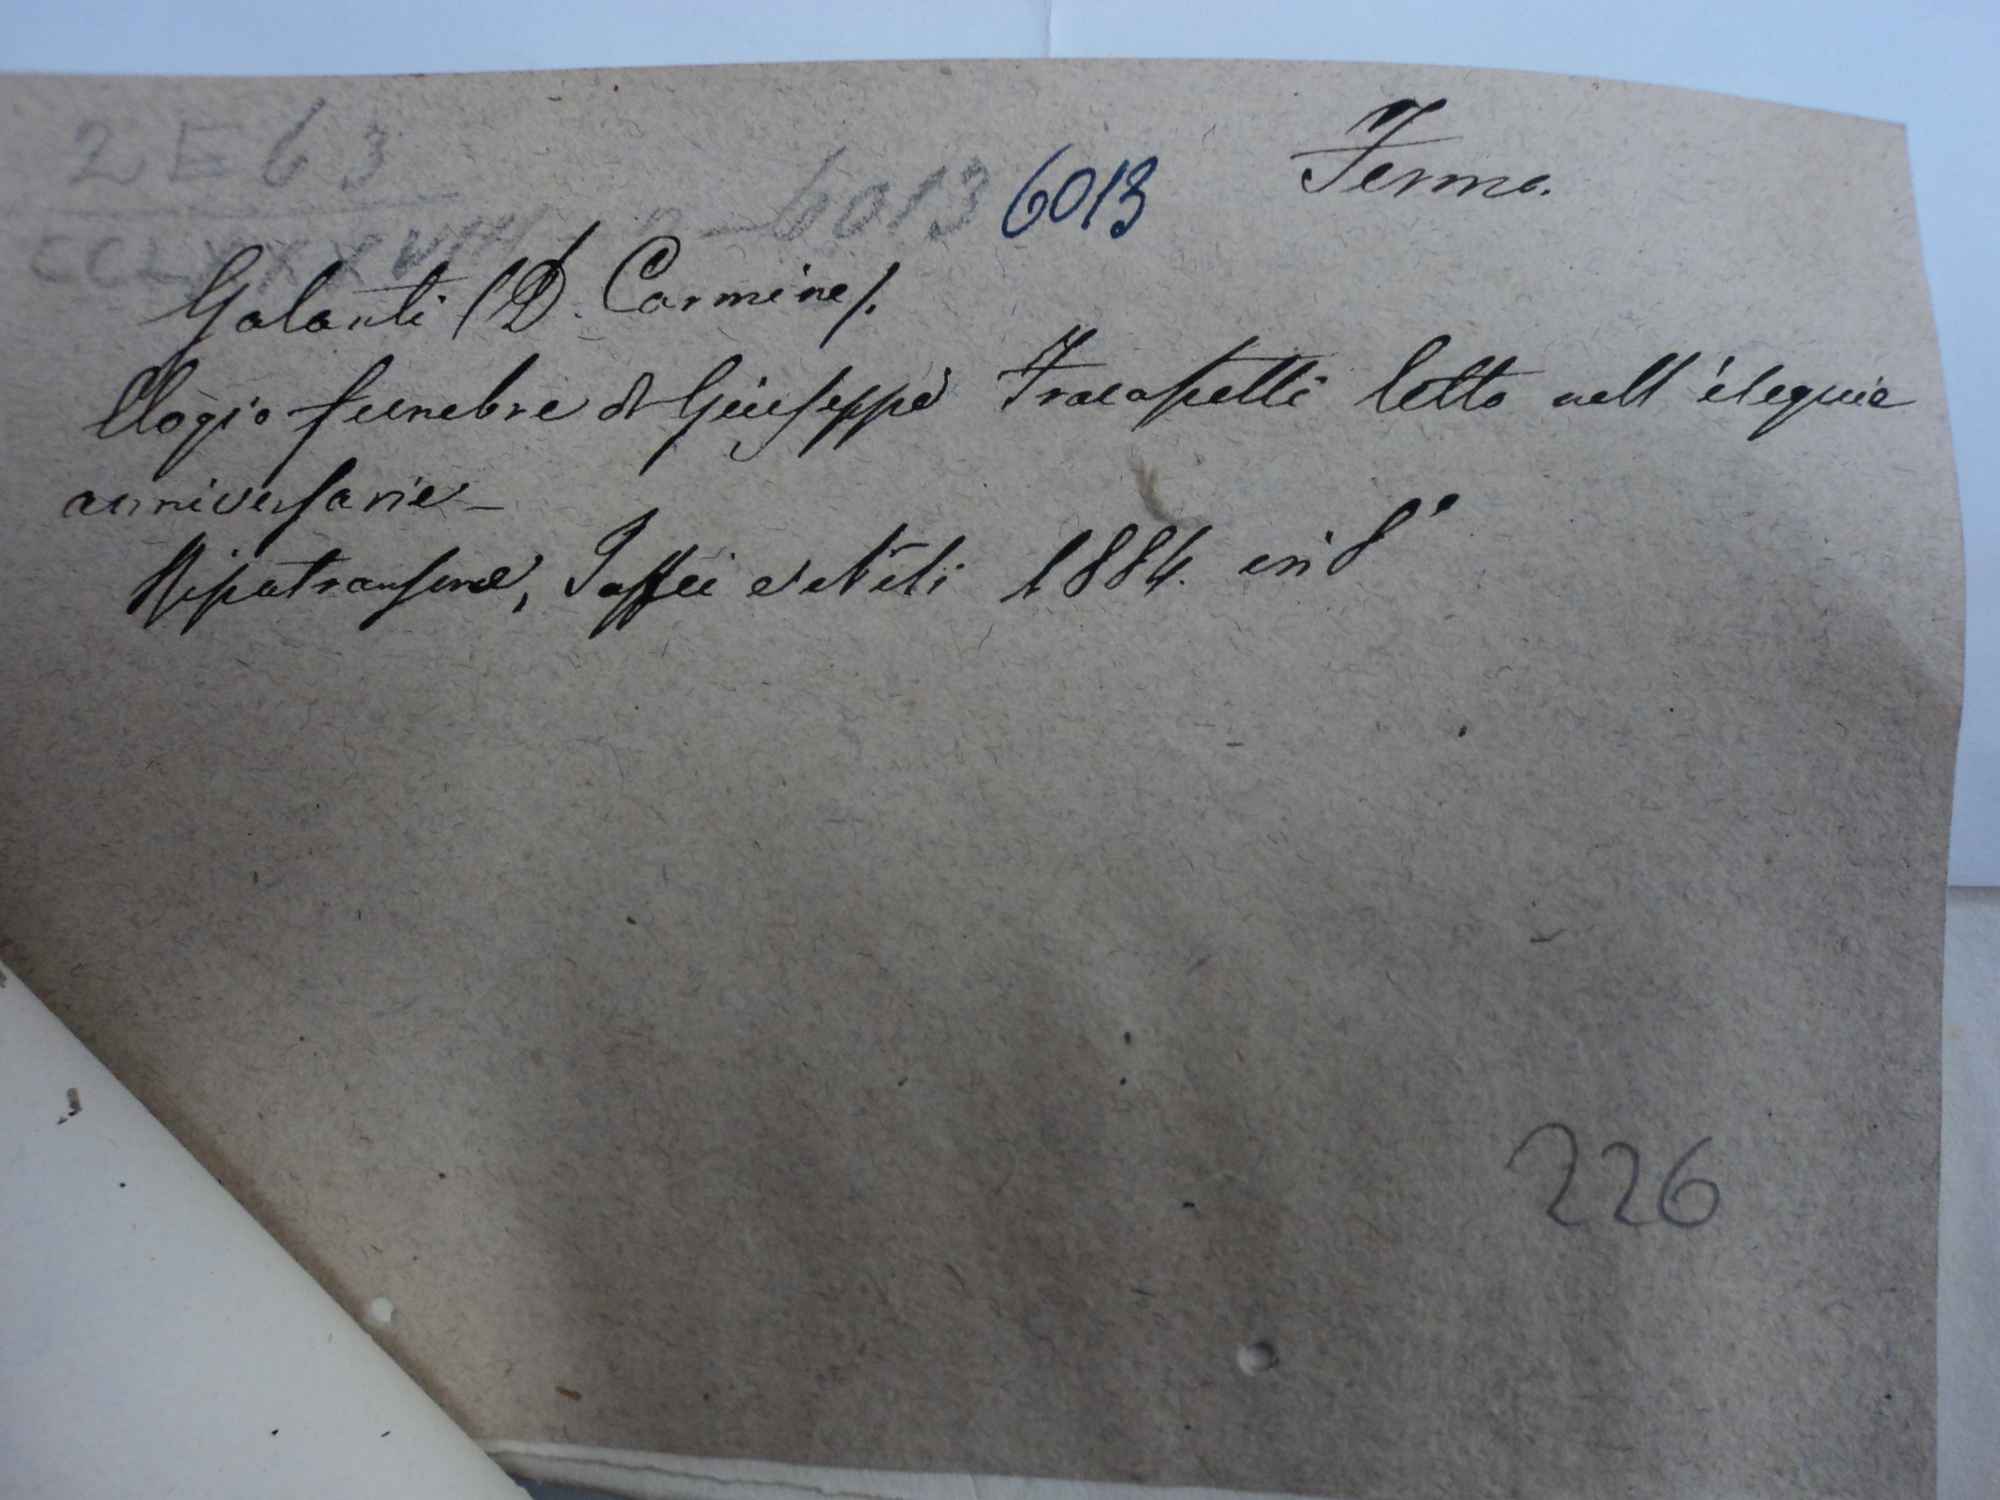 2 E 6 3
CCLXXXVIII n - 6013 6013
Fermo.
Galanti (D. Carmine).
Elogio funebre di Giuseppe Fracassetti letto nell'esequie
anniversarie -
Ripatransone, Jaffei e Nisi 1884. in 8°
226